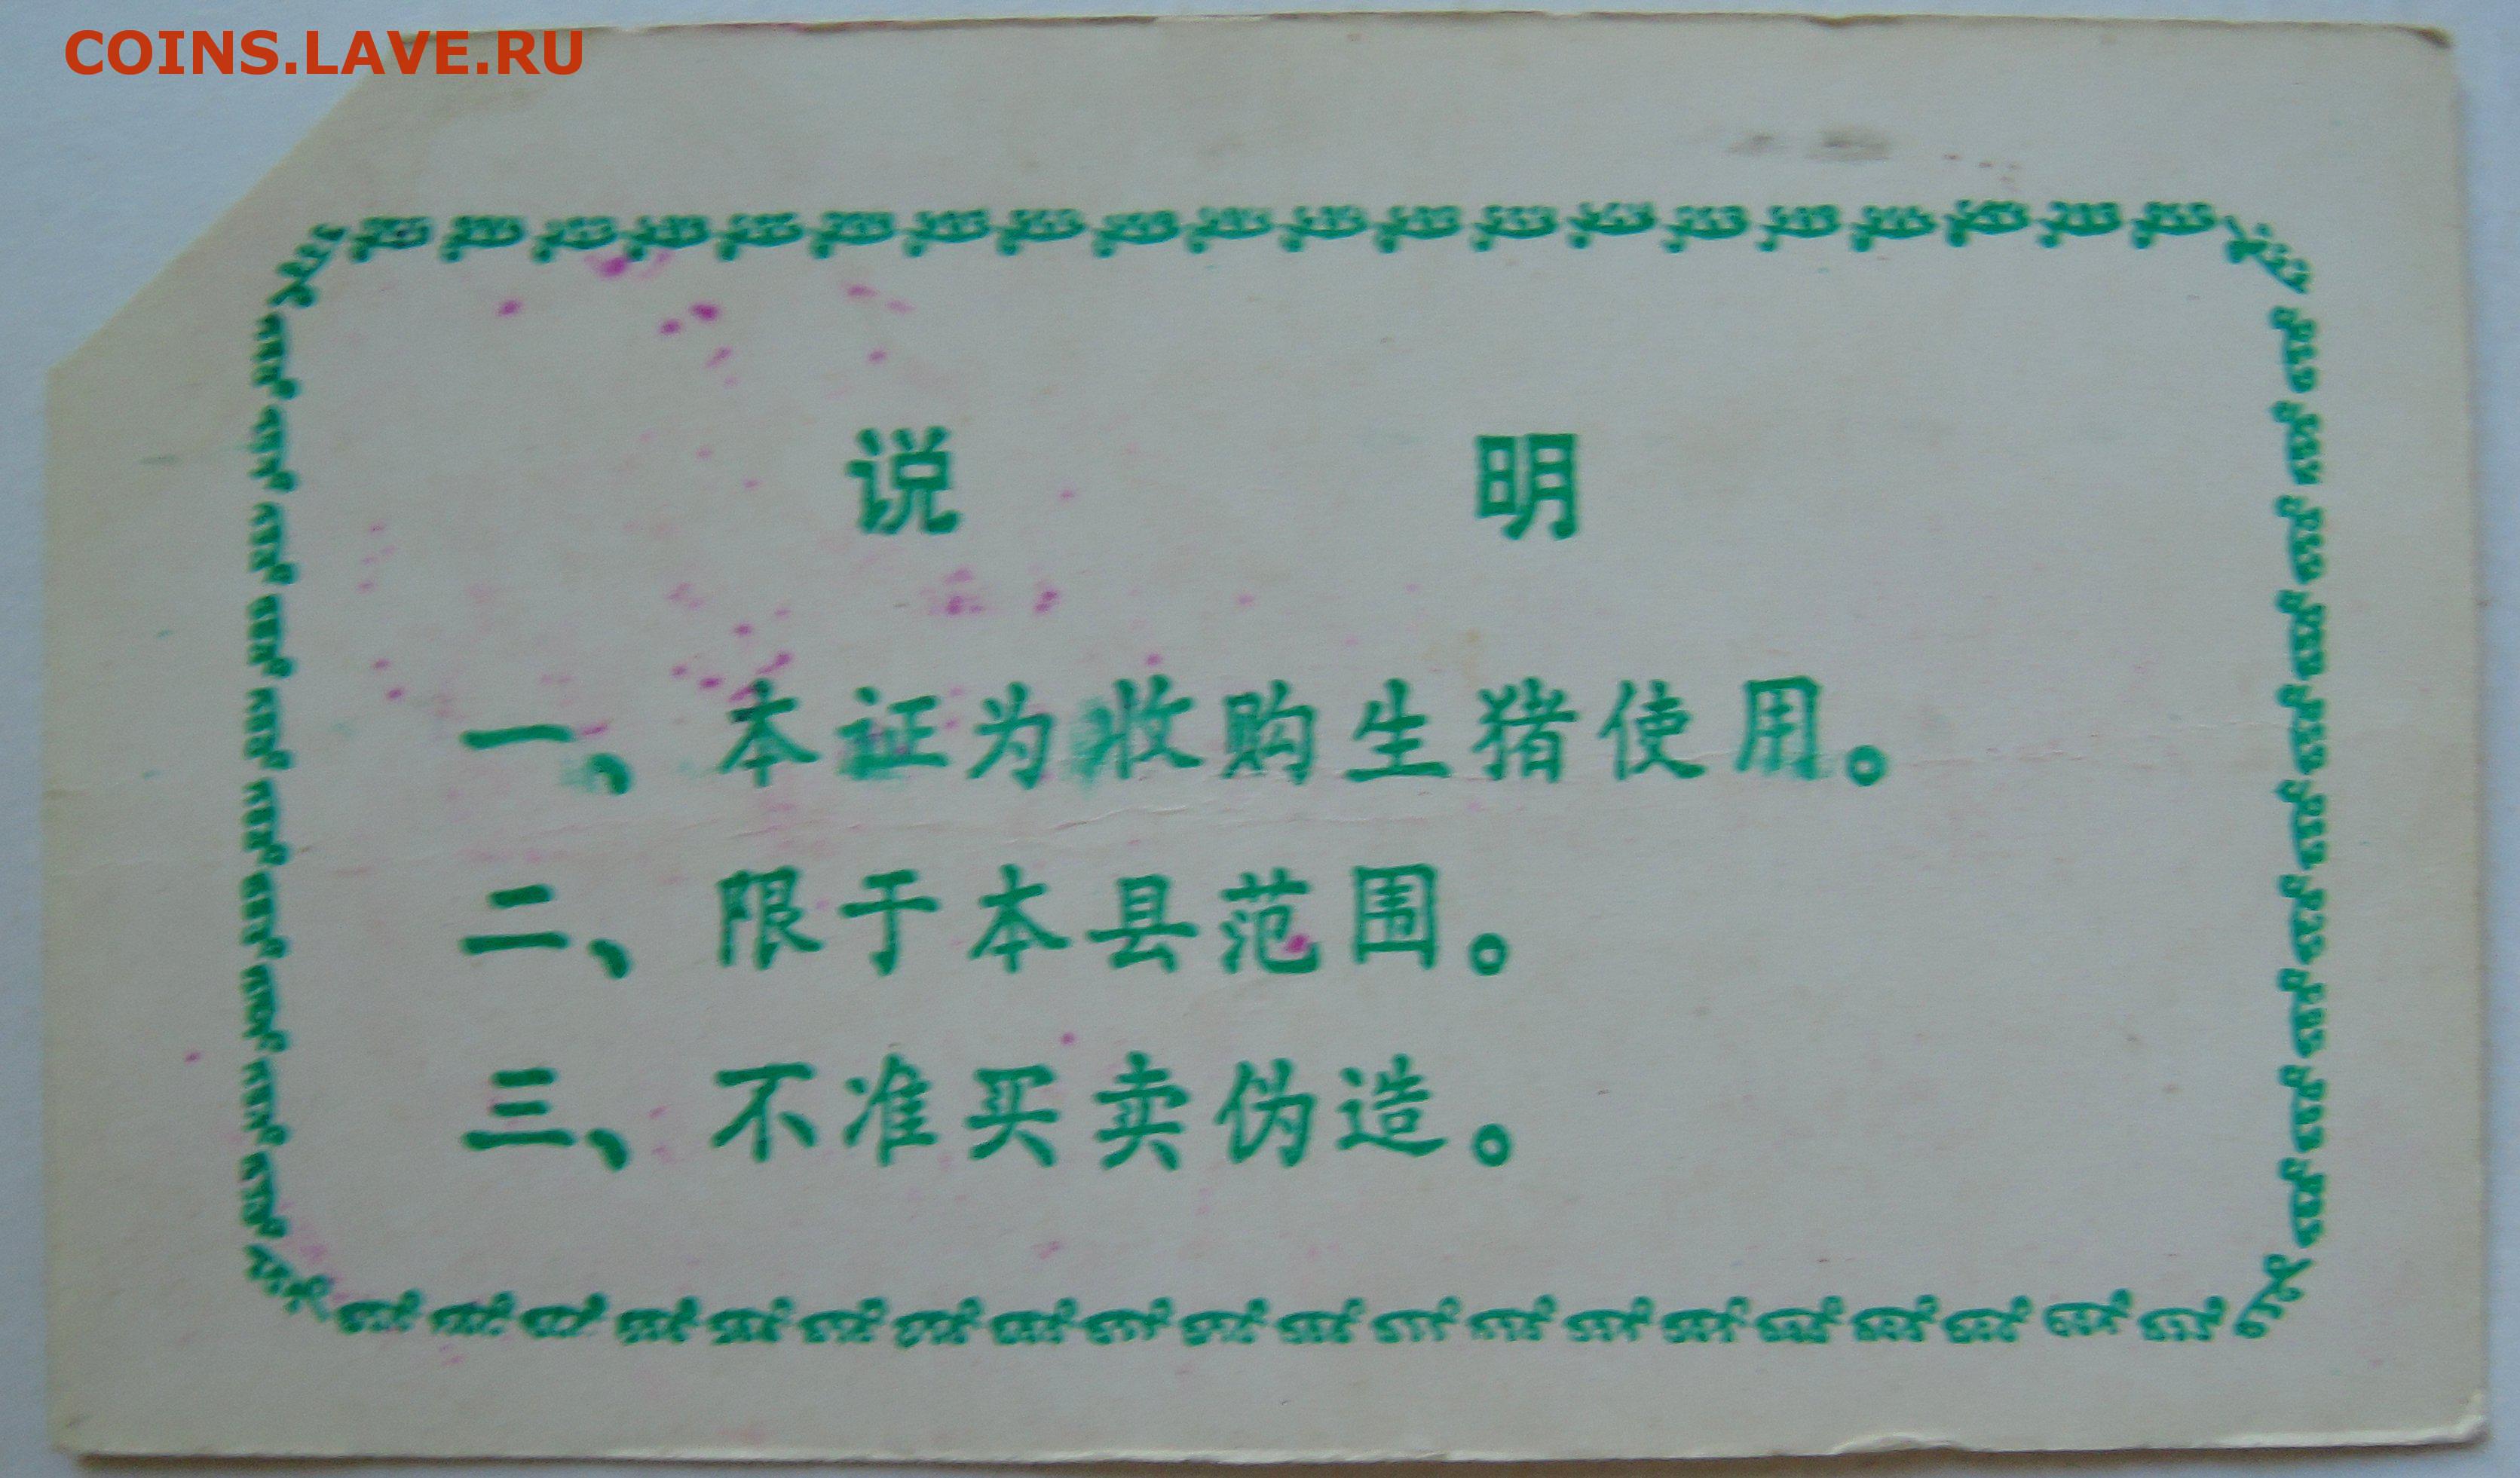 COINS.LAVE.RU
说 明
一、本证为收购生猪使用。
二、限于本县范围。
三、不准买卖伪造。